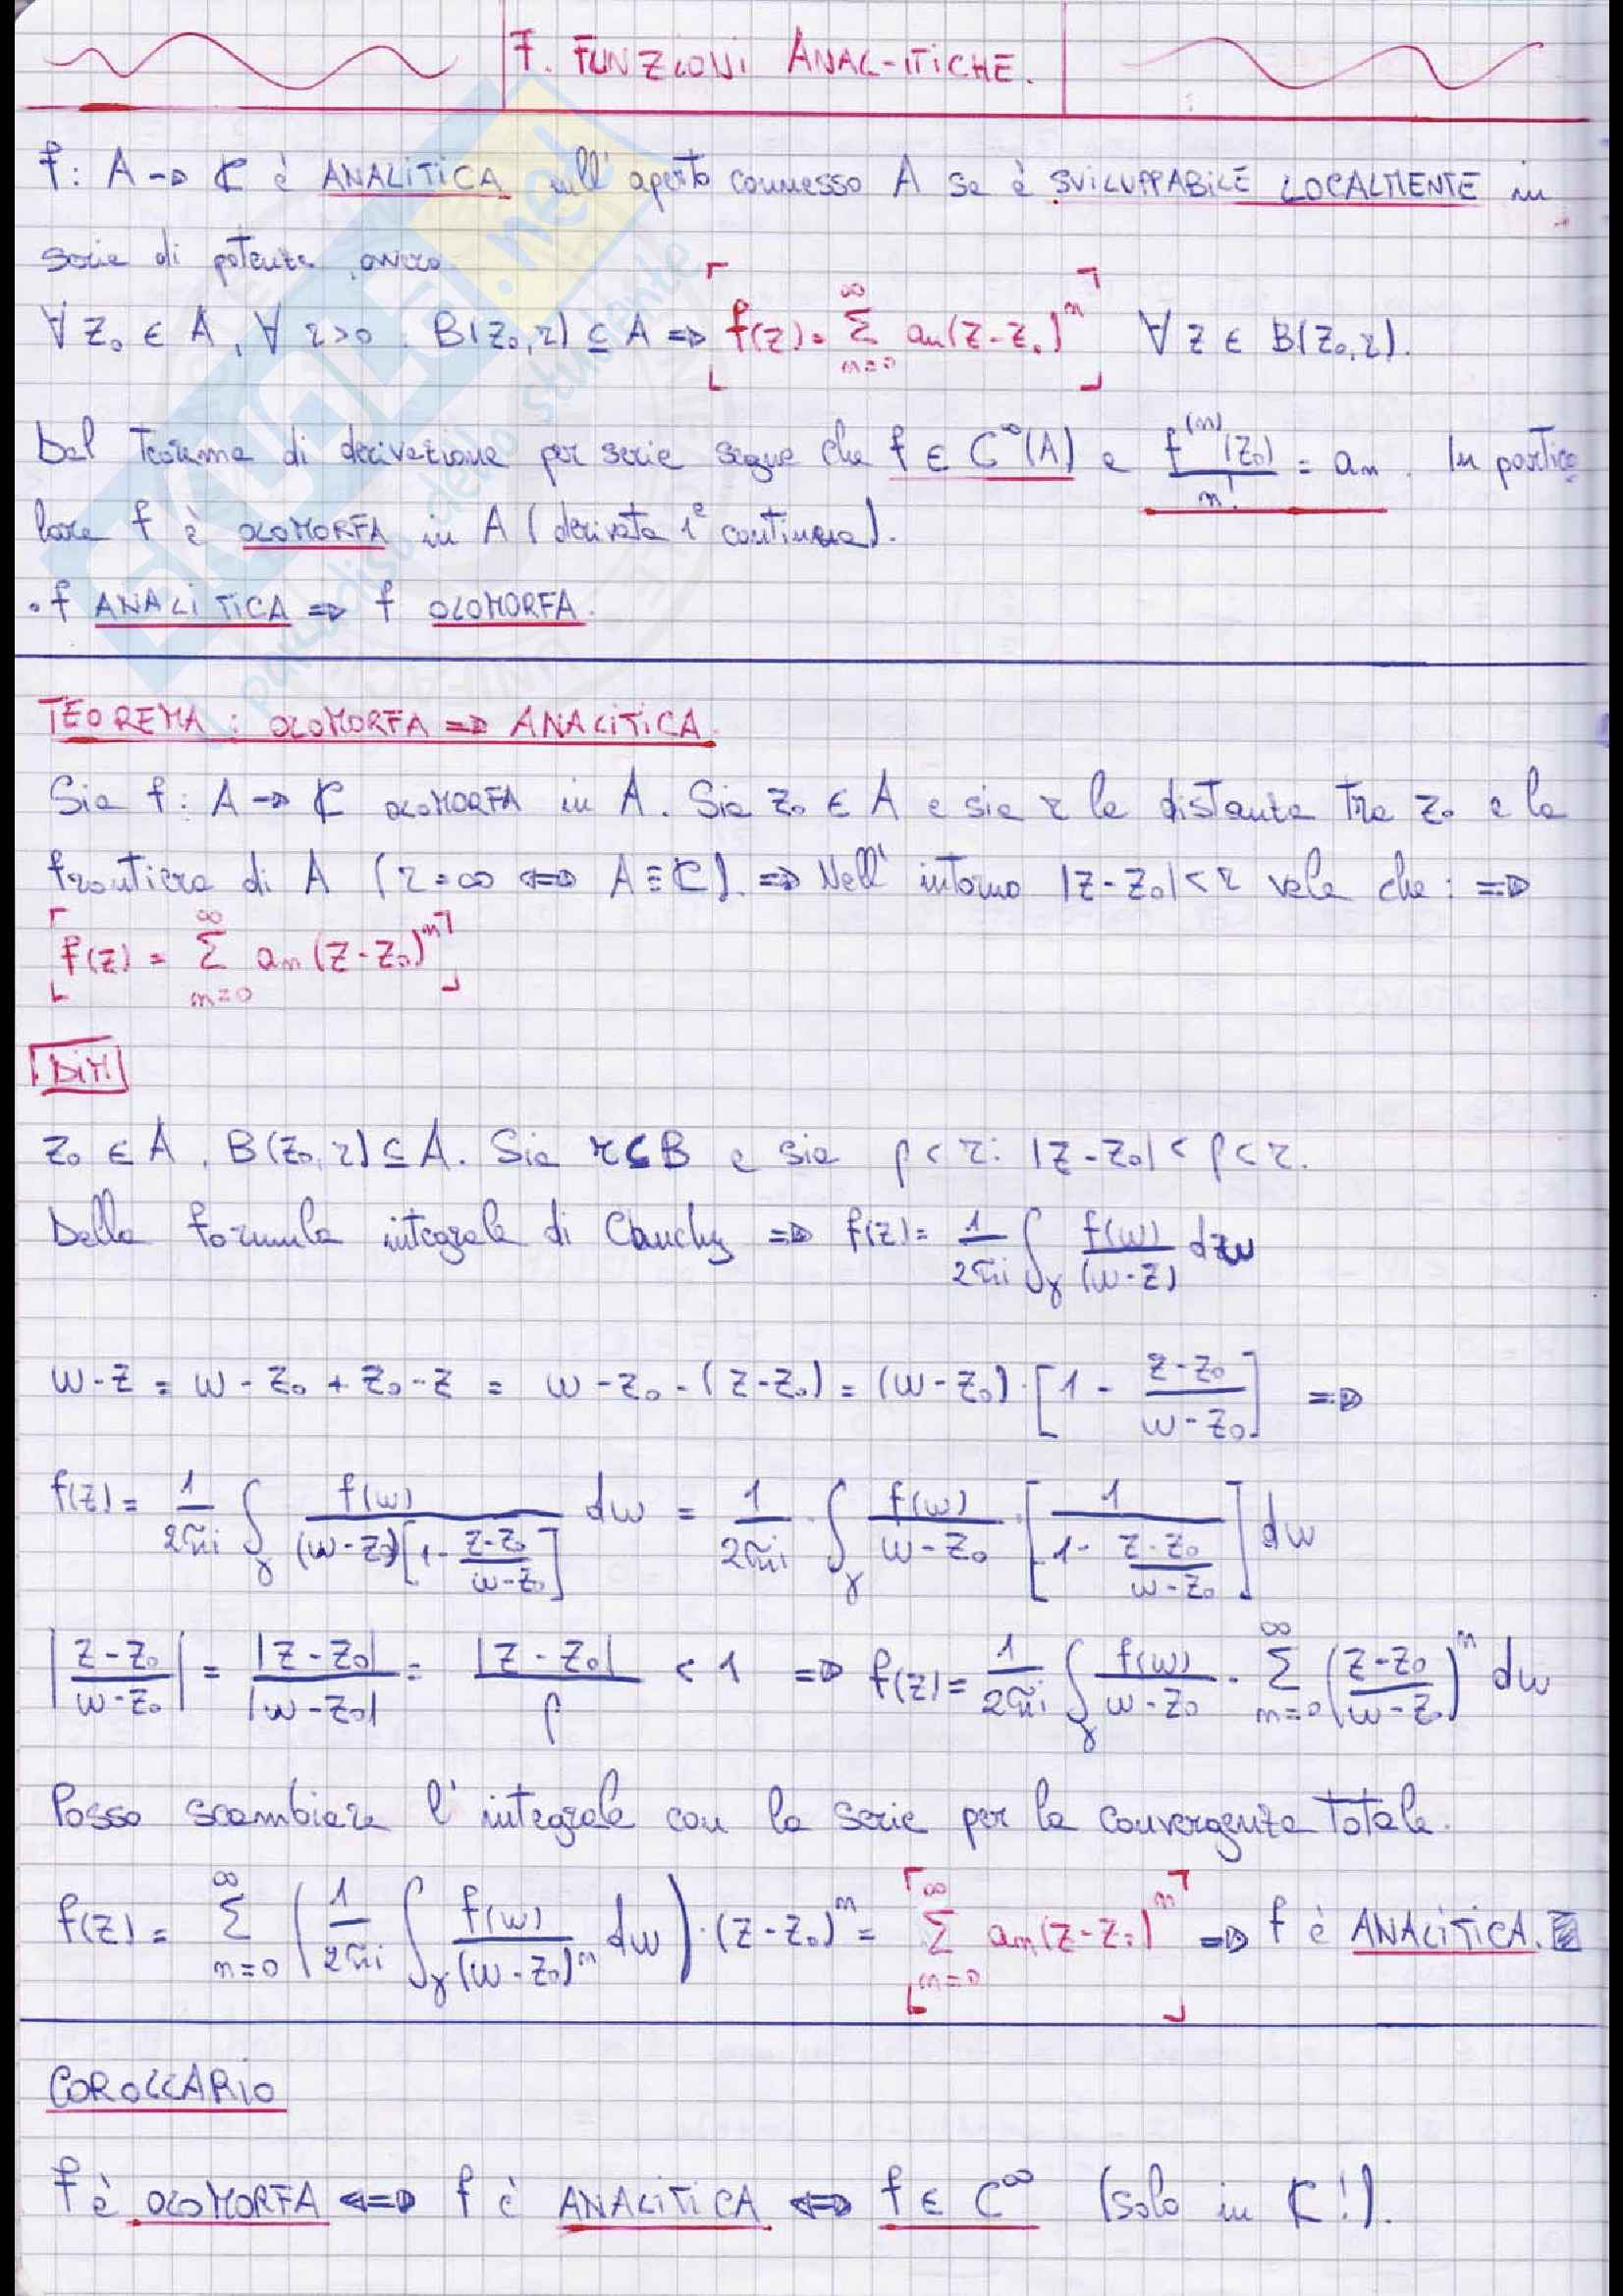 7. FUNZIONI ANALITICHE.
f: A → ℂ è ANALITICA sull' aperto connesso A se è SVILUPPABILE LOCALMENTE in
serie di potenze, ovvero
∀ z₀ ∈ A, ∀ r>0 : B(z₀,r) ⊆ A ⇒ f(z) = Σ_{n=0}^{∞} aₙ(z-z₀)ⁿ ∀ z ∈ B(z₀,r).
Dal Teorema di derivazione per serie segue che f ∈ C^∞(A) e f^{(n)}(z₀)/n! = aₙ. In partico
lare f è OLOMORFA in A (derivata 1ª continua).
• f ANALITICA ⇒ f OLOMORFA.
TEOREMA: OLOMORFA ⇒ ANALITICA.
Sia f: A → ℂ OLOMORFA in A. Sia z₀ ∈ A e sia r la distanza tra z₀ e la
frontiera di A (r=∞ ⇔ A≡ℂ). ⇒ Nell' intorno |z-z₀|<r vale che: ⇒
f(z) = Σ_{n=0}^{∞} aₙ(z-z₀)ⁿ
DIM
z₀ ∈ A, B(z₀,r) ⊆ A. Sia r⊆B e sia ρ<r: |z-z₀|<ρ<r.
Dalla formula integrale di Cauchy ⇒ f(z) = 1/2πi ∫_γ f(w)/(w-z) dw
w-z = w-z₀+z₀-z = w-z₀-(z-z₀) = (w-z₀)·[1 - (z-z₀)/(w-z₀)] ⇒
f(z) = 1/2πi ∫_γ f(w)/((w-z₀)[1-(z-z₀)/(w-z₀)]) dw = 1/2πi · ∫_γ f(w)/(w-z₀) · [1/(1-(z-z₀)/(w-z₀))] dw
|(z-z₀)/(w-z₀)| = |z-z₀|/|w-z₀| = |z-z₀|/ρ < 1 ⇒ f(z) = 1/2πi ∫_γ f(w)/(w-z₀) · Σ_{n=0}^{∞} ((z-z₀)/(w-z₀))ⁿ dw
Posso scambiare l'integrale con la serie per la convergenza totale.
f(z) = Σ_{n=0}^{∞} (1/2πi ∫_γ f(w)/(w-z₀)ⁿ dw)·(z-z₀)ⁿ = Σ_{n=0}^{∞} aₙ(z-z₀)ⁿ ⇒ f è ANALITICA.
COROLLARIO
f è OLOMORFA ⇔ f è ANALITICA ⇔ f ∈ C^∞ (solo in ℂ!).